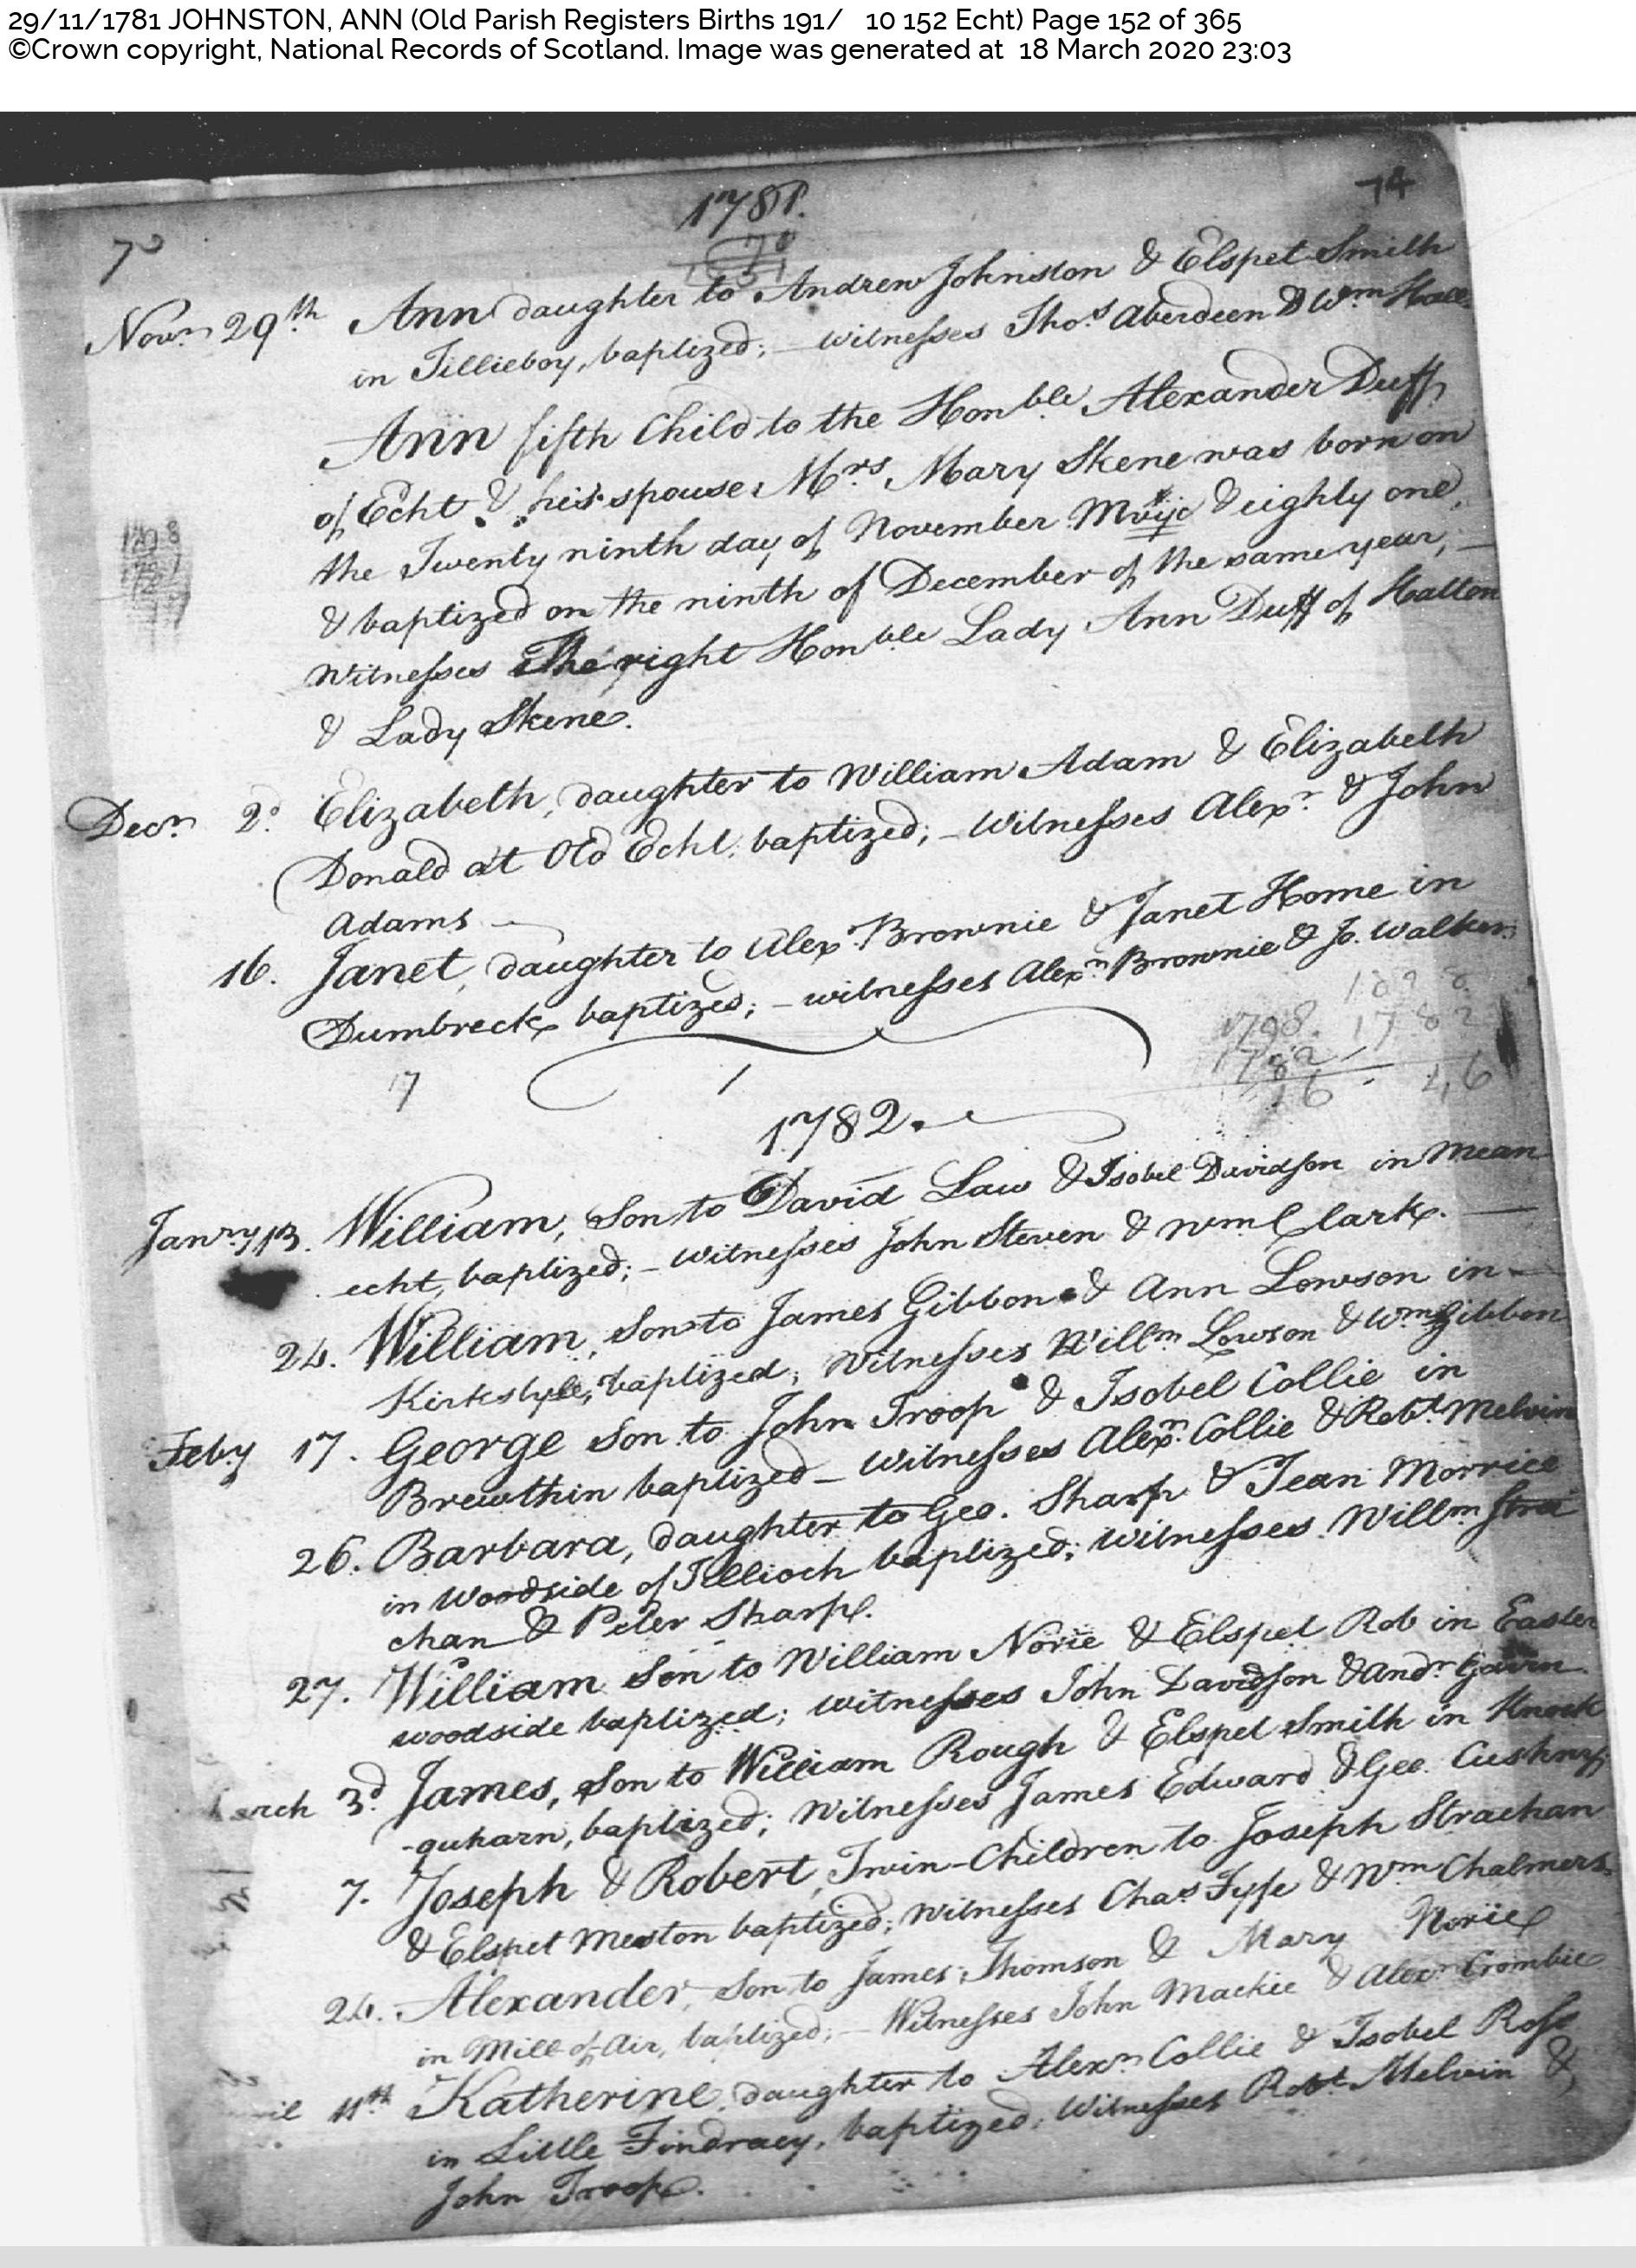 29/11/1781 JOHNSTON, ANN (Old Parish Registers Births 191/ 10 152 Echt) Page 152 of 365
©Crown copyright, National Records of Scotland. Image was generated at 18 March 2020 23:03
1781. 74
70
Novr. 29th Ann daughter to Andrew Johnston & Elspet Smith
in Tillieboy, baptized; – witnesses Thos. Aberdeen & Wm
Ann fifth Child to the Honble Alexander Duff
of Echt & his spouse Mrs. Mary Skene was born on
the Twenty ninth day of November Mvijc & eighty one,
& baptized on the ninth of December of the same year, –
Witnesses The right Honble Lady Ann Duff of Hatton
& Lady Skene.
Decr. 2d. Elizabeth, daughter to William Adam & Elizabeth
Donald at Old Echt, baptized; – Witnesses Alexr. & John
Adams –
16. Janet, daughter to Alexr. Brownie & Janet Home in
Dumbreck baptized; – witnesses Alexr. Brownie & Jo. Walker.
1798. 1782
1782
16 . 46
17
1782.
Janry 13. William, Son to David Law & Isobel Davidson in Mean
echt, baptized; – witnesses John Steven & Wm Clark. –
24. William, Son to James Gibbon & Ann Lowson in
Kirkstyle, baptized; Witnesses Willm Lowson & Wm Gibbon
Feby 17. George Son to John Troop & Isobel Collie in
Brewthin baptized – Witnesses Alexr. Collie & Robt Melvin
26. Barbara, daughter to Geo. Sharp & Jean Morrice
in Woodside of Tillioch baptized; witnesses Willm Stra
chan & Peter Sharp.
27. William Son to William Norie & Elspet Rob in Easter
woodside baptized; witnesses John Davidson & Andr Gavin
arch 3d. James, Son to William Rough & Elspet Smith in Knock
-quharn, baptized; Witnesses James Edward & Geo. Cushny;
7. Joseph & Robert, Twin-Children to Joseph Strachan
& Elspet Meston baptized; Witnesses Chas Fyfe & Wm Chalmers
24. Alexander, Son to James Thomson & Mary Norie
in Mill of Air, baptized; – Witnesses John Mackie & Alexr Crombie
il 11th Katherine daughter to Alexr Collie & Isobel Ross
in Little Findracy, baptized; Witnesses Robt Melvin &
John Troop.